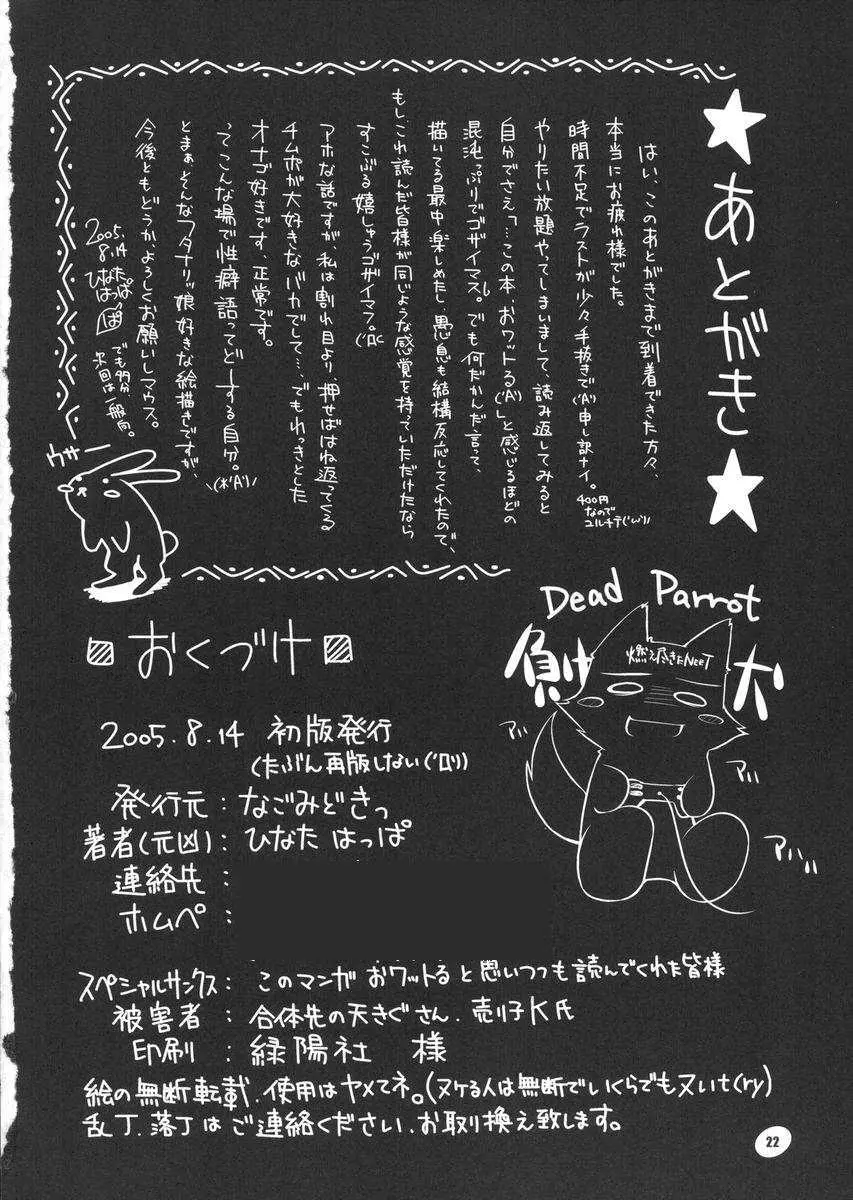 ★あとがき★
はい、このあとがきまで到着できた方々、
本当にお疲れ様でした。
時間不足でラストが少々手抜きで('A`)申し訳ナイ。
400円
なので
ユルチテ('ω`)
やりたい放題やってしまいまして、読み返してみると
自分でさえ「…この本、おワットる('A`)」と感じるほどの
混沌っぷりでゴザイマス。でも何だかんだ言って、
描いてる最中楽しめたし愚息も結構反応してくれたので、
もし、これ読んだ皆様が同じような感覚を持っていただけたなら
すこぶる嬉しゅうゴザイマフ。
アホな話ですが、私は割れ目より、押せばはね返ってくる
チムポが大好きなバカでして…、でもれっきとした
オナゴ好きです、正常です。
ってこんな場で性癖語ってどーする自分。
とまぁ、そんなフタナリッ娘好きな絵描きですが、
今後ともどうか、よろしくお願いしマウス。
2005.
8.14
ひなた
はっぱ
でも多分
次回は一般向。
ウサー
Dead Parrot
負け犬
燃え尽きたNEET
アハ
アハ
アハハ
おくづけ
2005.8.14 初版発行
(たぶん再版しない('ロ`))
発行元：なごみどきっ
著者(元凶)：ひなた はっぱ
連絡先：
ホムペ：
スペシャルサンクス：このマンガ おワットると思いつつも読んでくれた皆様
被害者：合体先の天きぐさん、売り子K氏
印刷：緑陽社 様
絵の無断転載、使用はヤメてネ。(ヌケる人は無断でいくらでも又いt(ry)
乱丁、落丁はご連絡ください、お取り換え致します。
22